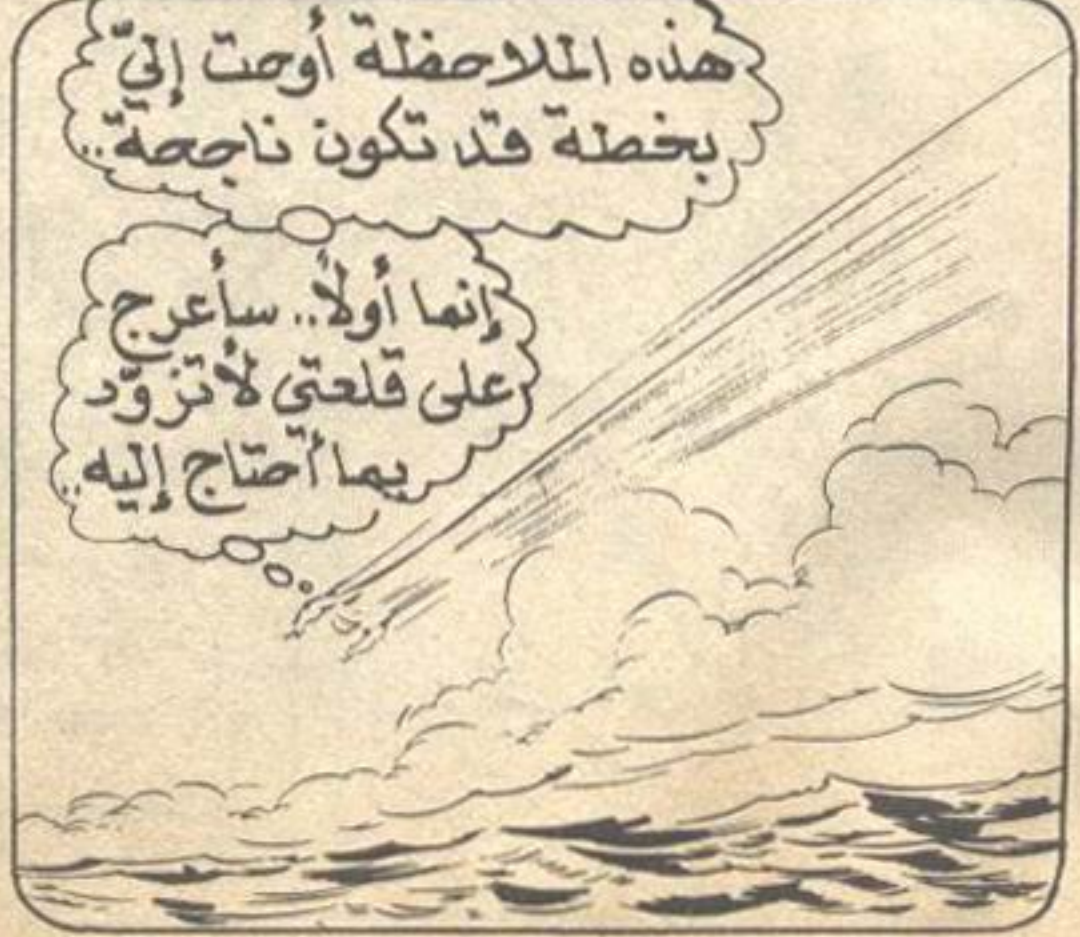 هذه الملاحظة أوحت إليّ
بخطة قد تكون ناجحة..
إنما أولاً.. سأعرج
على قلعتي لأتزوّد
بما أحتاج إليه..